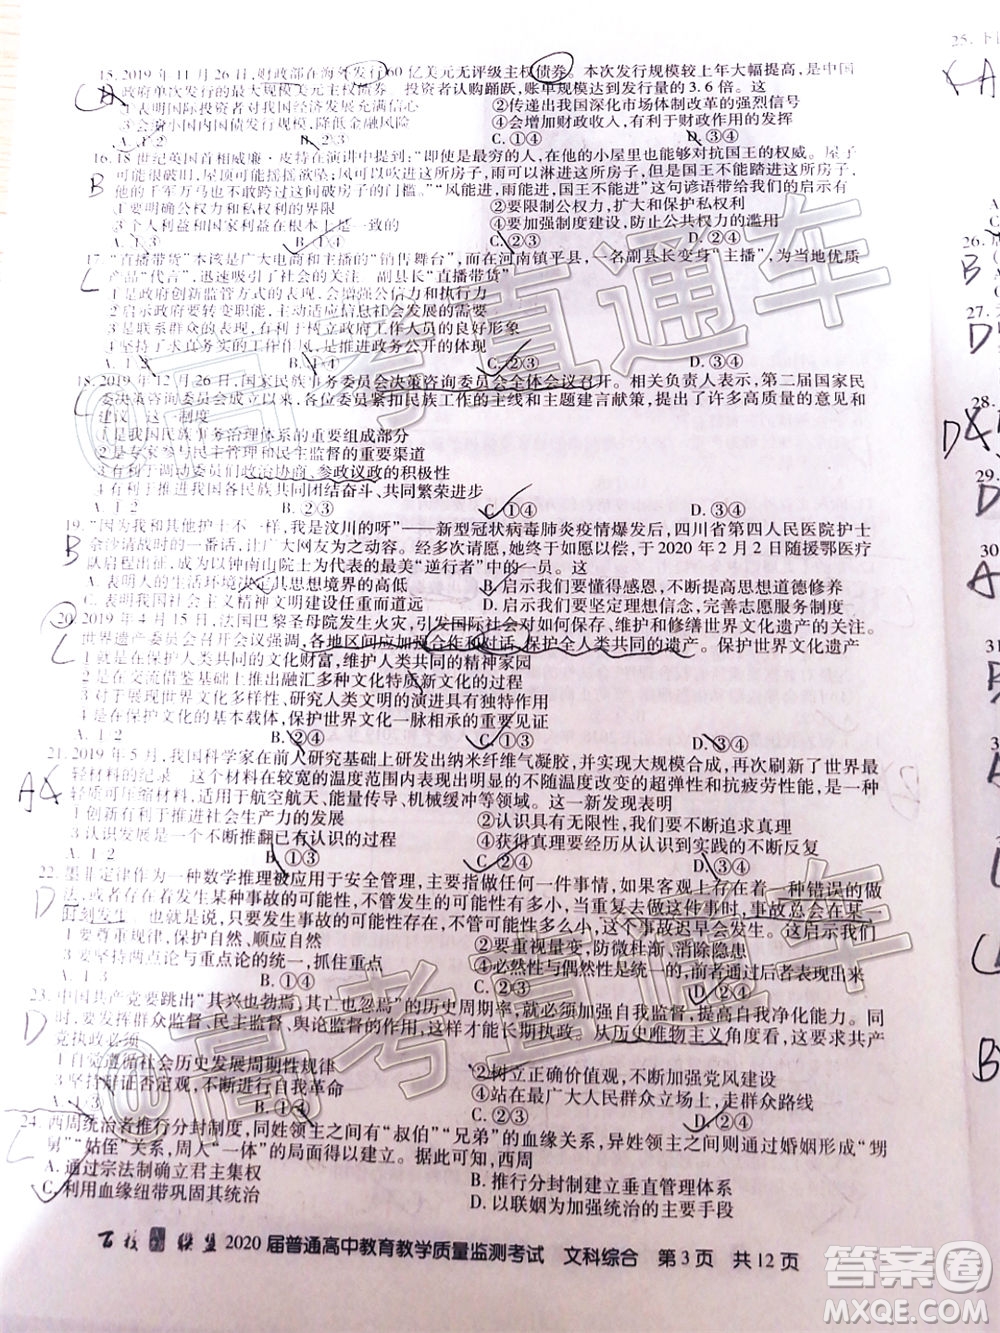 15. 2019 年 11 月 26 日，财政部在海外发行 60 亿美元无评级主权债券。本次发行规模较上年大幅提高，是中国
政府单次发行的最大规模美元主权债券。投资者认购踊跃，账单规模达到发行量的 3.6 倍。这
①表明国际投资者对我国经济发展充满信心 ②传递出我国深化市场体制改革的强烈信号
③会缩小国内国债发行规模，降低金融风险 ④会增加财政收入，有利于财政作用的发挥
A. ①② B. ②③ C. ①④ D. ③④
16. 18 世纪英国首相威廉·皮特在演讲中提到：“即使是最穷的人，在他的小屋里也能够对抗国王的权威。屋子
可能很破旧，屋顶可能摇摇欲坠；风可以吹进这所房子，雨可以淋进这所房子，但是国王不能踏进这所房子，
他的千军万马也不敢跨过这间破房子的门槛。”“风能进，雨能进，国王不能进”这句谚语带给我们的启示有
①要明确公权力和私权利的界限 ②要限制公权力，扩大和保护私权利
③个人利益和国家利益在根本上是一致的 ④要加强制度建设，防止公共权力的滥用
A. ①③ B. ①④ C. ②③ D. ②④
17. “直播带货”本该是广大电商和主播的“销售舞台”，而在河南镇平县，一名副县长变身“主播”，为当地优质
产品“代言”，迅速吸引了社会的关注。副县长“直播带货”
①是政府创新监管方式的表现，会增强公信力和执行力
②启示政府要转变职能，主动适应信息社会发展的需要
③是联系群众的表现，有利于树立政府工作人员的良好形象
④坚持了求真务实的工作作风，是推进政务公开的体现
A. ①② B. ①④ C. ②③ D. ③④
18. 2019 年 12 月 26 日，国家民族事务委员会决策咨询委员会全体会议召开。相关负责人表示，第二届国家民
委决策咨询委员会成立以来，各位委员紧扣民族工作的主线和主题建言献策，提出了许多高质量的意见和
建议。这一制度
①是我国民族事务治理体系的重要组成部分
②是专家参与民主管理和民主监督的重要渠道
③有利于调动委员们政治协商、参政议政的积极性
④有利于推进我国各民族共同团结奋斗、共同繁荣进步
A. ①② B. ②③ C. ①④ D. ③④
19. “因为我和其他护士不一样，我是汶川的呀”——新型冠状病毒肺炎疫情爆发后，四川省第四人民医院护士
佘沙请战时的一番话，让广大网友为之动容。经多次请愿，她终于如愿以偿，于 2020 年 2 月 2 日随援鄂医疗
队启程出征，成为以钟南山院士为代表的最美“逆行者”中的一员。这
A. 表明人的生活环境决定其思想境界的高低 B. 启示我们要懂得感恩，不断加强思想道德修养
C. 表明我国社会主义精神文明建设任重而道远 D. 启示我们要坚定信念，完善志愿服务制度
20. 2019 年 4 月 15 日，法国巴黎圣母院发生火灾，引发国际社会对如何保存、维护和修缮世界文化遗产的关注。
世界遗产委员会召开会议强调，各地区间应加强合作和对话，保护全人类共同的遗产。保护世界文化遗产
①就是在保护人类共同的文化财富，维护人类共同的精神家园
②是在交流借鉴基础上推出融汇多种文化特质新文化的过程
③对于展现世界文化多样性，研究人类文明的演进具有独特作用
④是在保护文化的基本载体，保护世界文化一脉相承的重要见证
A. ①② B. ②④ C. ①③ D. ③④
21. 2019 年 5 月，我国科学家在前人研究基础上研发出纳米纤维气凝胶，并实现大规模合成，再次刷新了世界最
轻材料的纪录。这个材料在较宽的温度范围内表现出明显的不随温度改变的超弹性和抗疲劳性能，是最
轻质可压缩材料，适用于航空航天、能量传导、机械缓冲等领域。这一新发现表明
①创新有利于推进社会生产力的发展 ②认识具有无限性，我们要不断追求真理
③认识发展是一个不断推翻已有认识的过程 ④获得真理要经历认识到实践的不断循环
A. ①② B. ①③ C. ②④ D. ③④
22. 墨非定律作为一种数学推理被应用于安全管理，主要强调任何一件事情，如果客观上存在着一种错误的做
法，或者存在着发生某种事故的可能性，不管发生的可能性有多小，当重复去做这件事时，事故总会在某一
时刻发生。也就是说，只要发生事故的可能性存在，不管可能性多么小，这个事故迟早会发生。这启示我们
①要尊重规律，保护自然、顺应自然 ②要重视量变，防微杜渐、消除隐患
③要坚持两点论与重点论的统一，抓住重点 ④必然性与偶然性是统一的，不能忽视偶然性
A. ①② B. ①③ C. ②③ D. ②④
23. 中国共产党要跳出“其兴也勃焉，其亡也忽焉”的历史周期率，就必须加强自我监督，增强自我净化能力。同
时，要发挥群众监督、民主监督、舆论监督的作用，以形成发现问题、纠正偏差的机制。从历史唯物主义角度看，这要求共产
党执政必须
①自觉遵循社会历史发展周期性规律 ②树立正确价值观，不断加强党风建设
③坚持辩证否定观，不断进行自我革命 ④站在最广大人民的立场上，走群众路线
A. ①③ B. ①④ C. ②③ D. ②④
24. 西周统治者推行分封制度，同姓领主之间有“叔伯”“兄弟”的血缘关系，异姓领主之间则通过婚姻形成“甥
舅”“姑侄”关系，周人“一体”的局面得以建立。据此可知，西周
A. 通过宗法制确立君主集权 B. 推行分封制建立垂直管理体系
C. 利用血缘纽带巩固其统治 D. 以联姻为主要手段扩大疆域
百校联盟 2020 届普通高中教育教学质量监测考试 文科综合 第 3 页 共 12 页
25. 下
26.
27.
28.
29.
30
31
@高考直通车
@高考直通车
答案圈
MXQE.COM